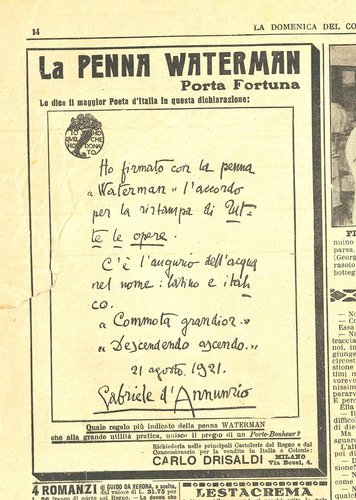 14
LA DOMENICA DEL CO
La PENNA WATERMAN
Porta Fortuna
Lo dice il maggior Poeta d'Italia in questa dichiarazione:
IO HO
QVEL CHE
HO DONATO
Ho firmato con la penna
« Waterman » l'accordo
per la ristampa di Tut-
te le opere.
C'è l'augurio dell'acqua
nel nome: latino e itali
co.
« Commota grandior. »
« Descendendo ascendo. »
21 agosto. 1921.
Gabriele d'Annunzio
Quale regalo più indicato della penna WATERMAN
che alla grande utilità pratica, unisce il pregio di un Porte-Bonheur?
Richiederla nelle principali Cartolerie del Regno e dal
Concessionario per la vendita in Italia e Colonie:
CARLO DRISALDI MILANO
Via Bossi, 4.
4 ROMANZI DI GUIDO DA VERONA, a scelta,
del valore di L. 31.75 per
LESTACREMA
FI
nuino
parsa.
(Georg
rasoio
botteg